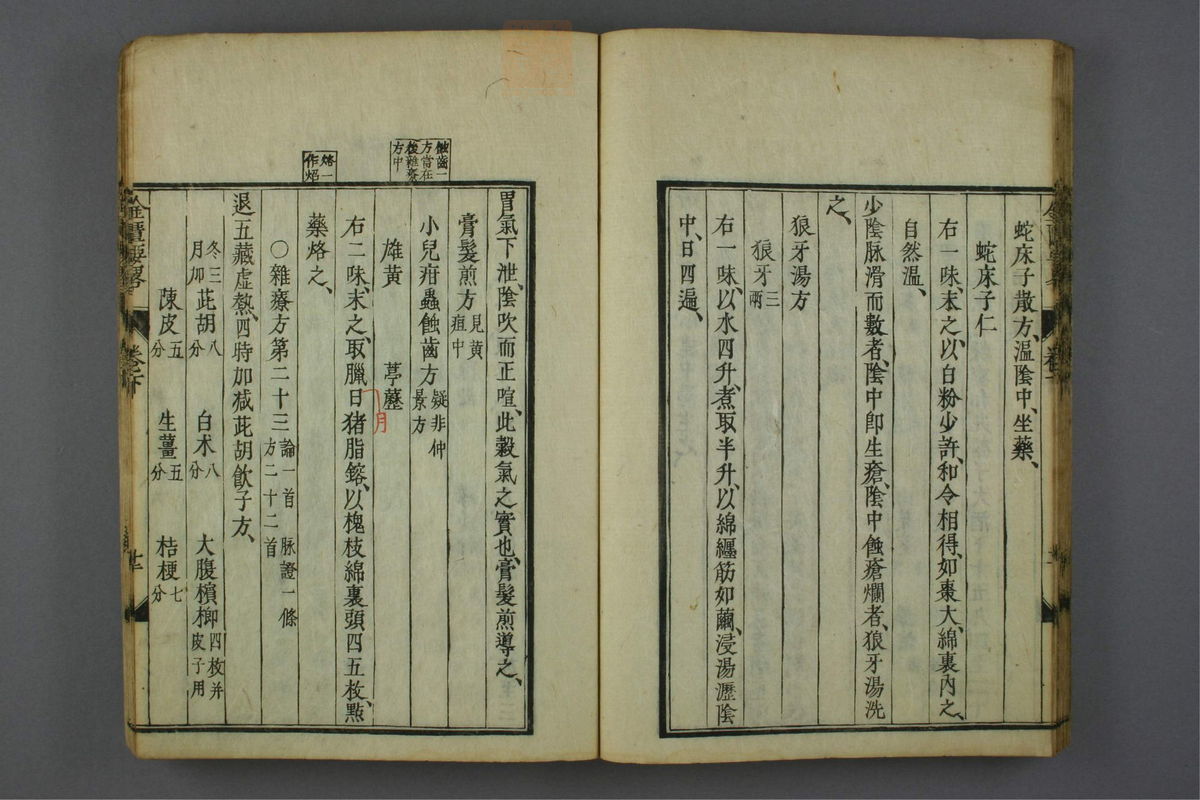 蛇床子散方、溫陰中、坐藥、
蛇床子仁
右一味、末之、以白粉少許、和令相得、如棗大、綿裏內之、
自然溫、
少陰脉滑而數者、陰中卽生瘡、陰中蝕瘡爛者、狼牙湯洗
之、
狼牙湯方
狼牙三兩
右一味、以水四升、煮取半升、以綿纒筋如繭、浸湯瀝陰
中、日四遍、
胃氣下泄、陰吹而正喧、此穀氣之實也、膏髮煎導之、
膏髮煎方見黃疸中
小兒疳蟲蝕齒方疑非仲景方
蝕齒一方當在後雜療方中
雄黃 葶藶
右二味、末之、取臘日猪脂鎔、以槐枝綿裏頭四五枚、㸃
月
藥烙之、
烙一作焰
〇雜療方第二十三論一首 脉證一條 方二十二首
退五藏虛熱、四時加减茈胡飮子方、
冬三月加茈胡八分 白术八分 大腹檳榔四枚并皮子用
陳皮五分 生薑五分 桔梗七分
金匱要略 卷下 廿一